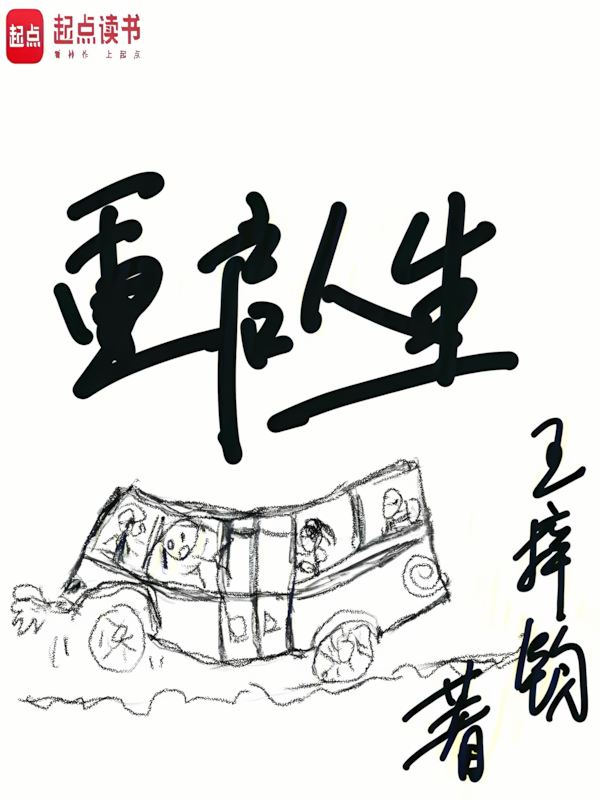 起点
起点读书
看神作 上起点
重启人生
王梓钧
著